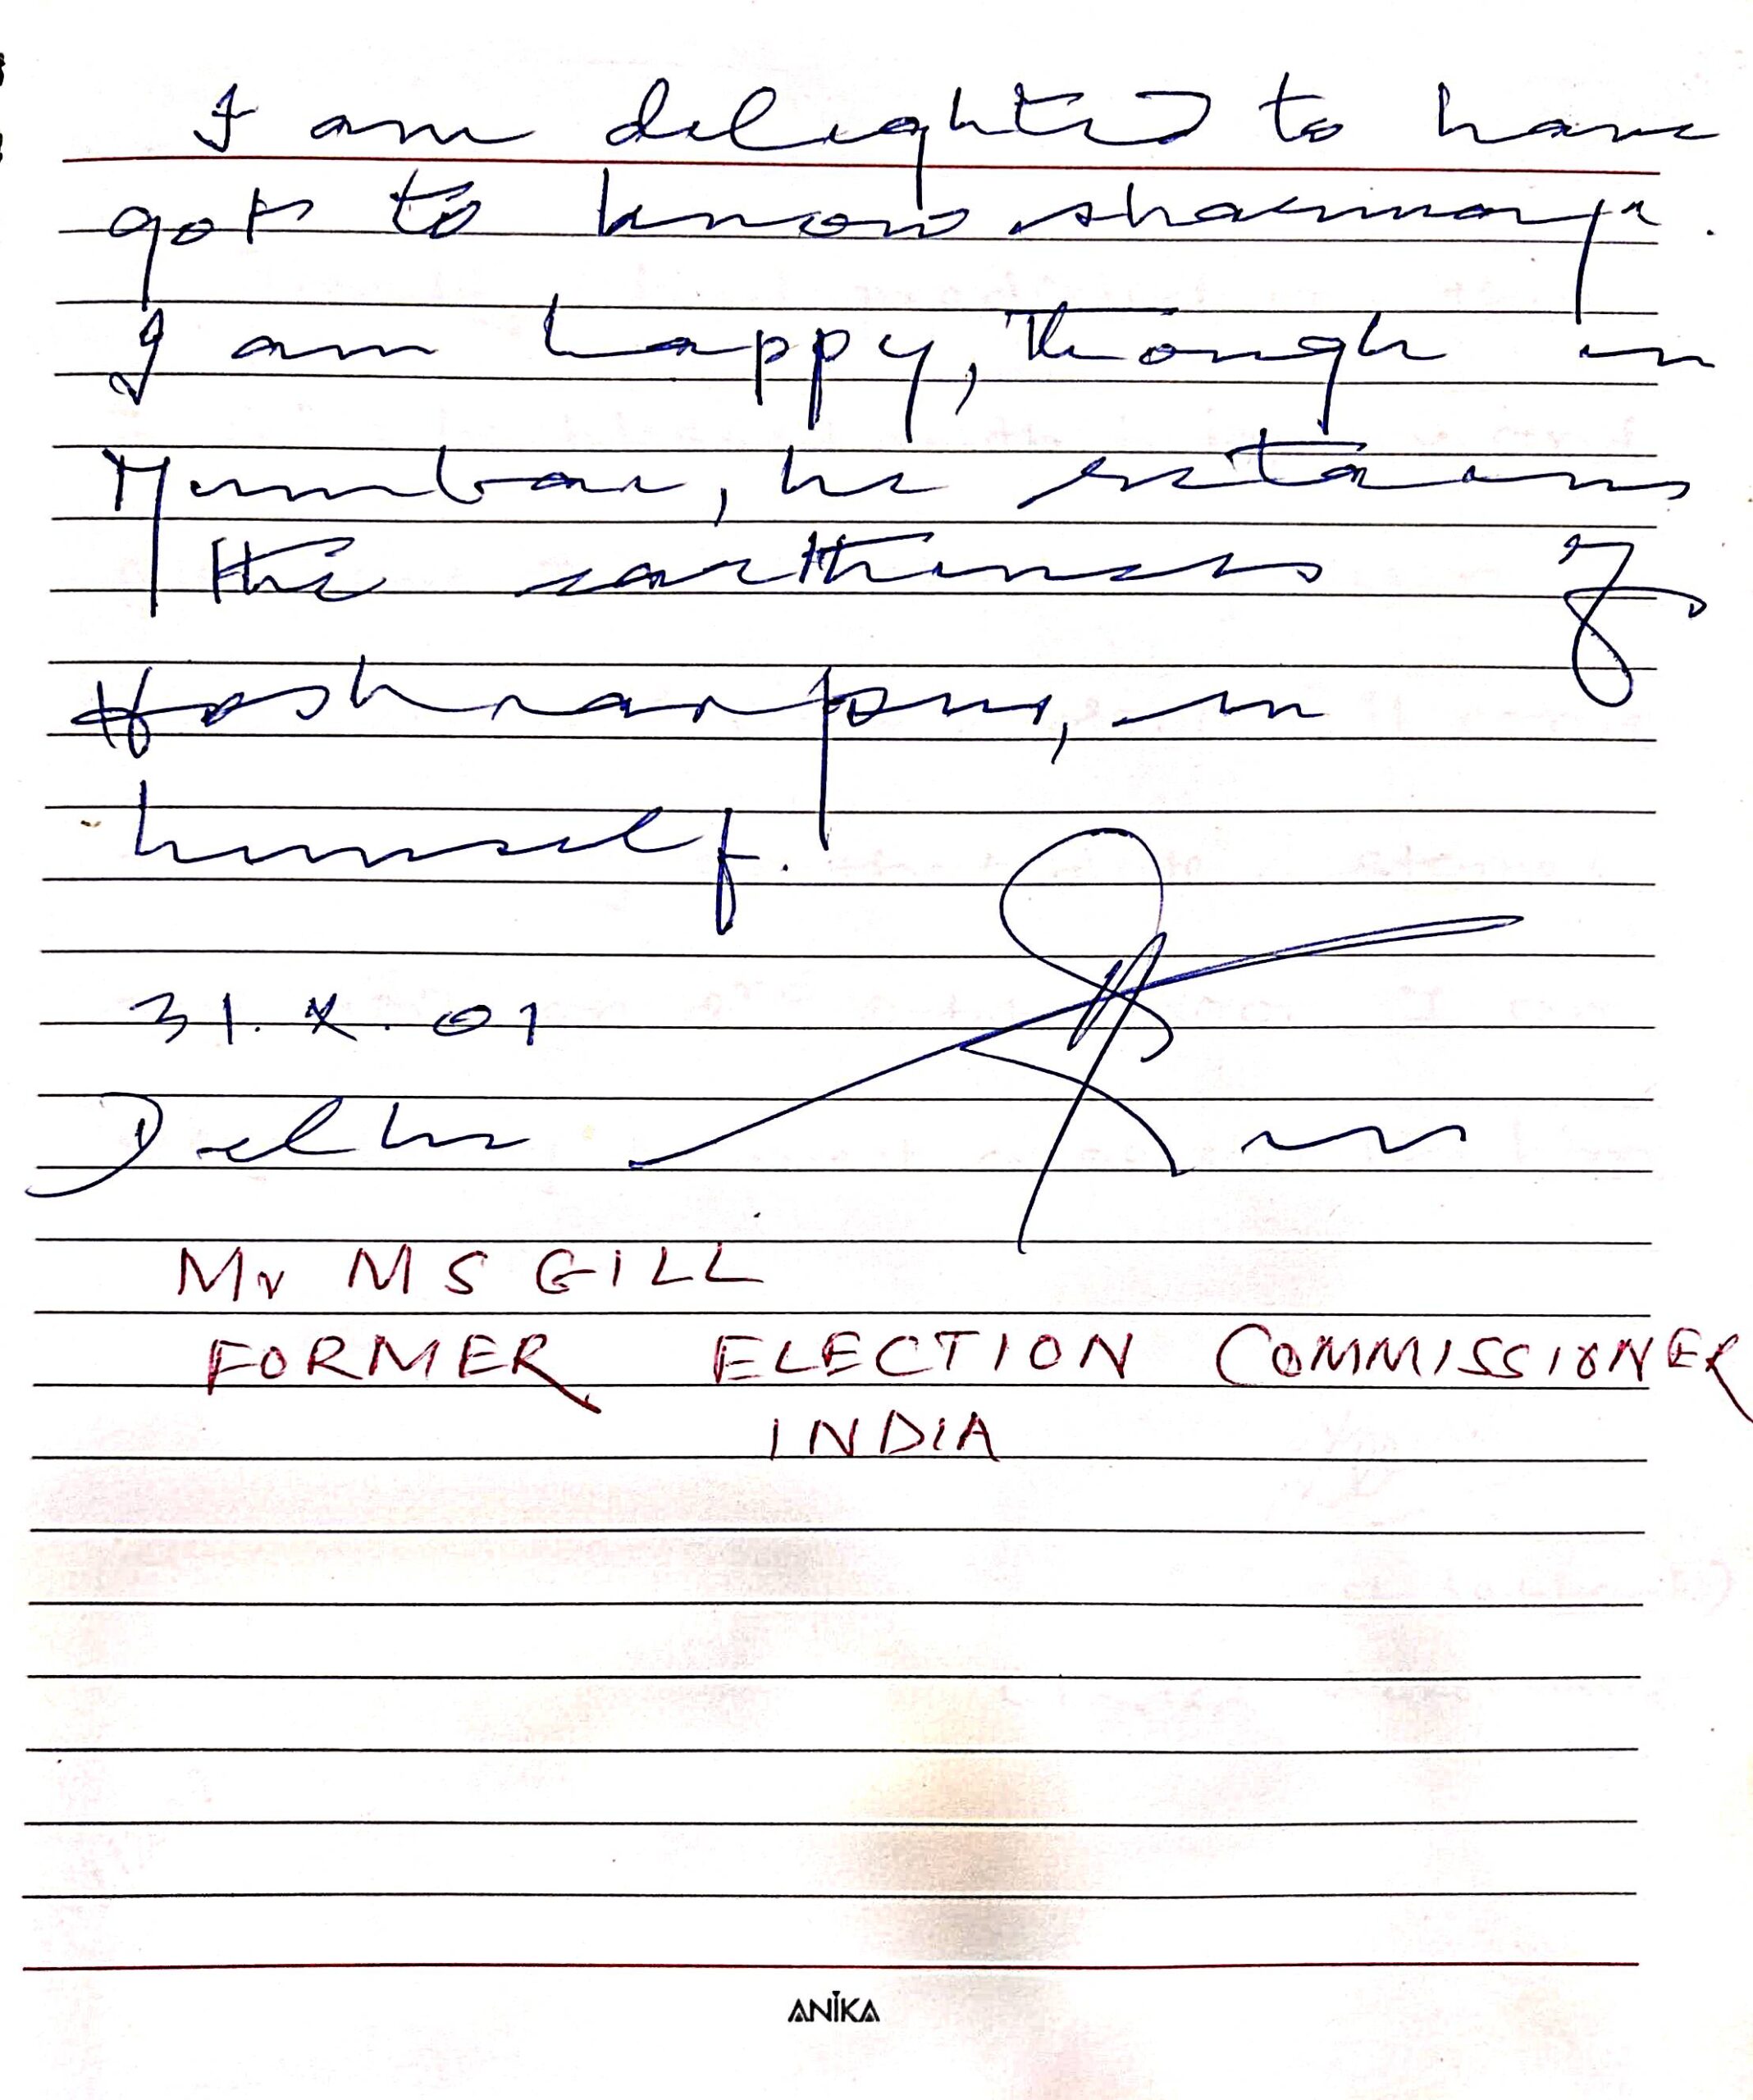 I am delighted to have
got to know sharmaji.
I am happy, though in
Mumbai, he retains
the earthiness of
Hoshiarpur, in
himself.
31. X. 01
Delhi
Mr M S GILL
FORMER ELECTION COMMISSIONER
INDIA
ANIKA